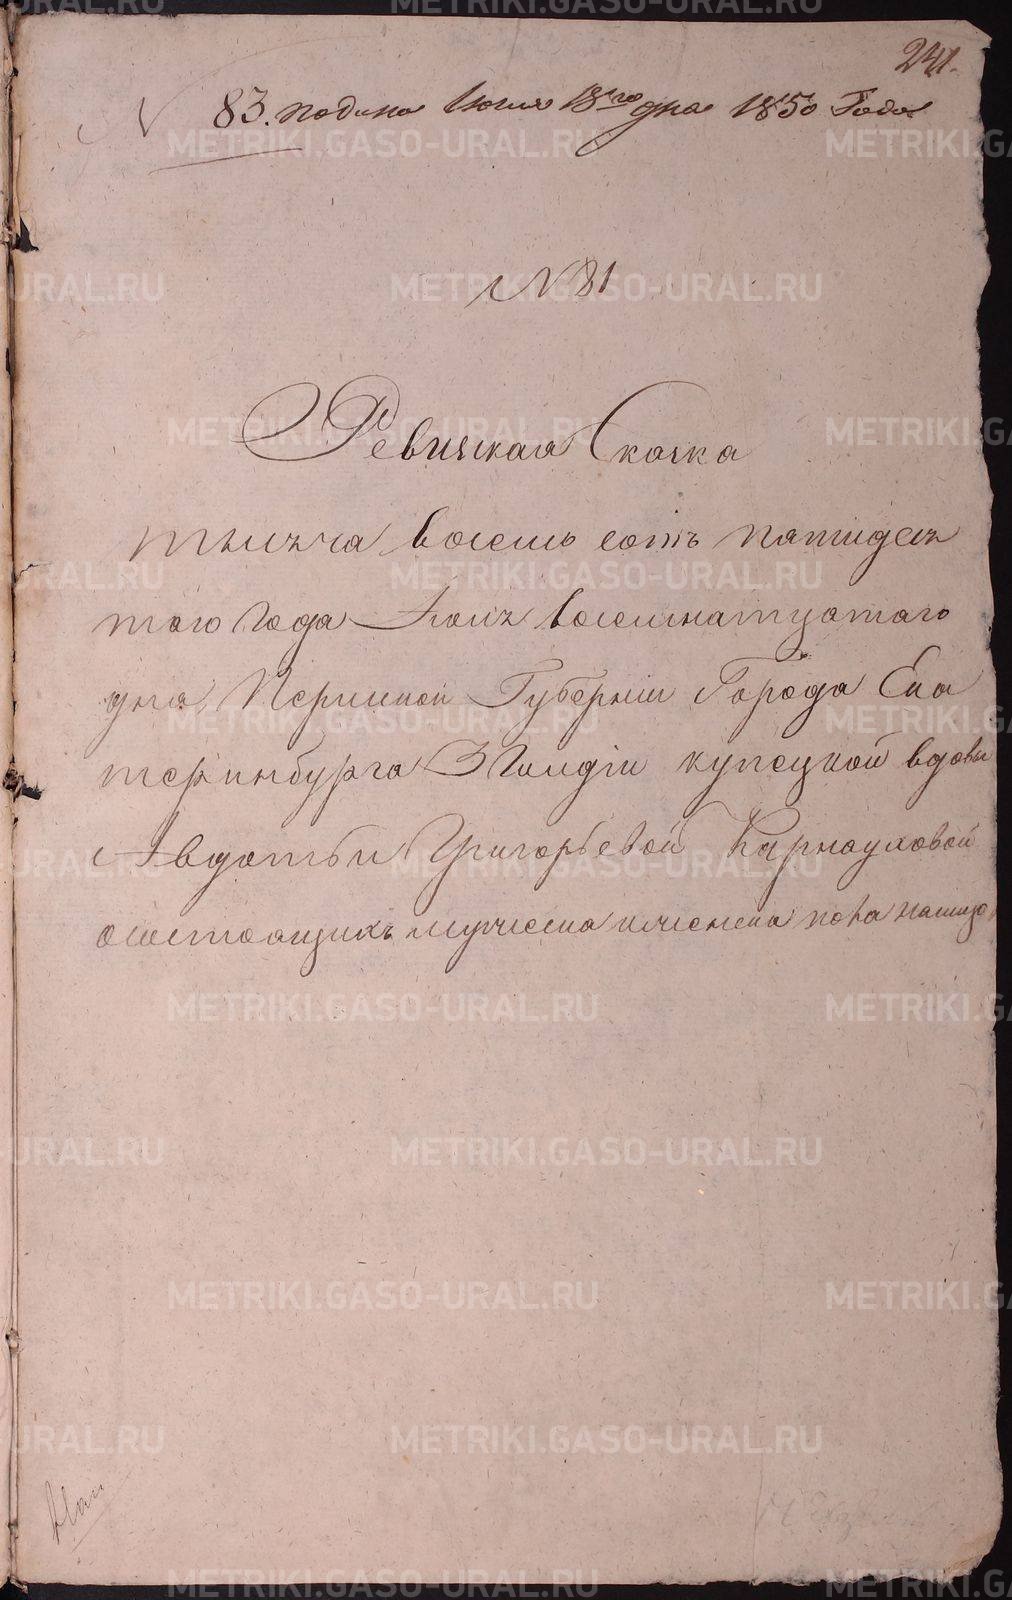 241.
83. подана Июля 18го дня 1850 Года
N 81
Ревизская Скаска
тысяча восемь сотъ пятидеся
того Года Июля восемнатцатаго
дня Пермской Губернiи Города Ека
теринбурга 3 Гилдiи купецкой вдовы
Авдотьи Григорьевой Карнауховой
осостоящихъ мужеска и женска пола нашиз
METRIKI.GASO-URAL.RU